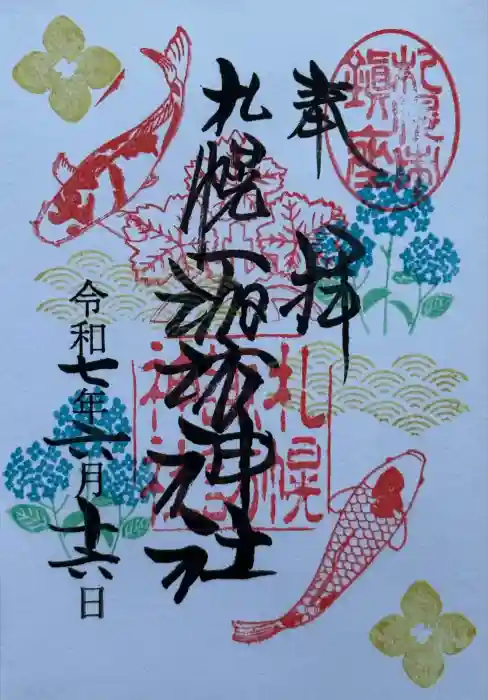 札幌市
鎮座
奉拝
札幌諏訪神社
札幌
諏訪
神社
令和七年六月十六日